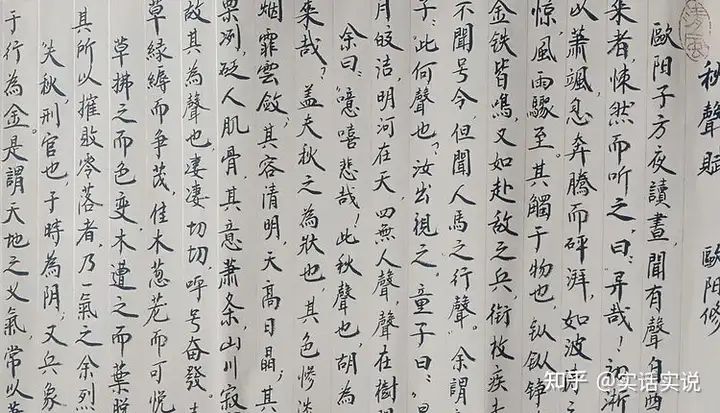 秋聲賦 歐阳修
歐阳子方夜讀書,聞有聲自西
来者,悚然而听之,曰:异哉!初淅
以萧颯,忽奔腾而砰湃,如波
惊,風雨驟至。其觸于物也,鏦鏦铮
金铁皆鳴,又如赴敌之兵,銜枚疾
不聞号令,但聞人馬之行聲。余謂
子:此何聲也?汝出視之。童子曰:星
月皎洁,明河在天,四無人聲,聲在樹間
余曰:噫嘻悲哉!此秋聲也,胡為
来哉?盖夫秋之為狀也,其色惨淡
烟霏雲斂,其容清明,天高日晶,其
栗冽,砭人肌骨,其意萧条,山川寂
故其為聲也,凄凄切切,呼号奋發。
草緑縟而争茂,佳木葱茏而可悦
草拂之而色变,木遭之而葉脱
其所以摧敗零落者,乃一氣之余烈
夫秋,刑官也,于時為阴,又兵象
于行為金。是謂天地之义氣,常以
知乎 @实话实说